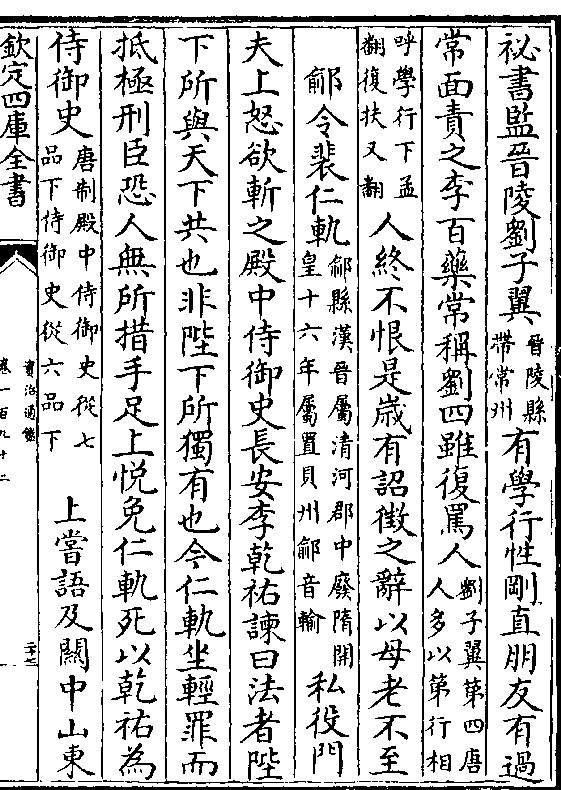 祕書監晉陵劉子翼晉陵縣帶常州有學行性剛直朋友有過
常面責之李百藥常稱劉四雖復罵人劉子翼第四唐人多以第行相
呼學行下孟翻復扶又翻人終不恨是歲有詔徵之辭以母老不至
鄃令裴仁軌鄃縣漢晉屬清河郡中廢隋開皇十六年屬置貝州鄃音輸私役門
夫上怒欲斬之殿中侍御史長安李乾祐諫曰法者陛
下所與天下共也非陛下所獨有也今仁軌坐輕罪而
抵極刑臣恐人無所措手足上悅免仁軌死以乾祐為
侍御史唐制殿中侍御史從七品下侍御史從六品下上嘗語及關中山東
欽定四庫全書
資治通鑑
卷一百九十二